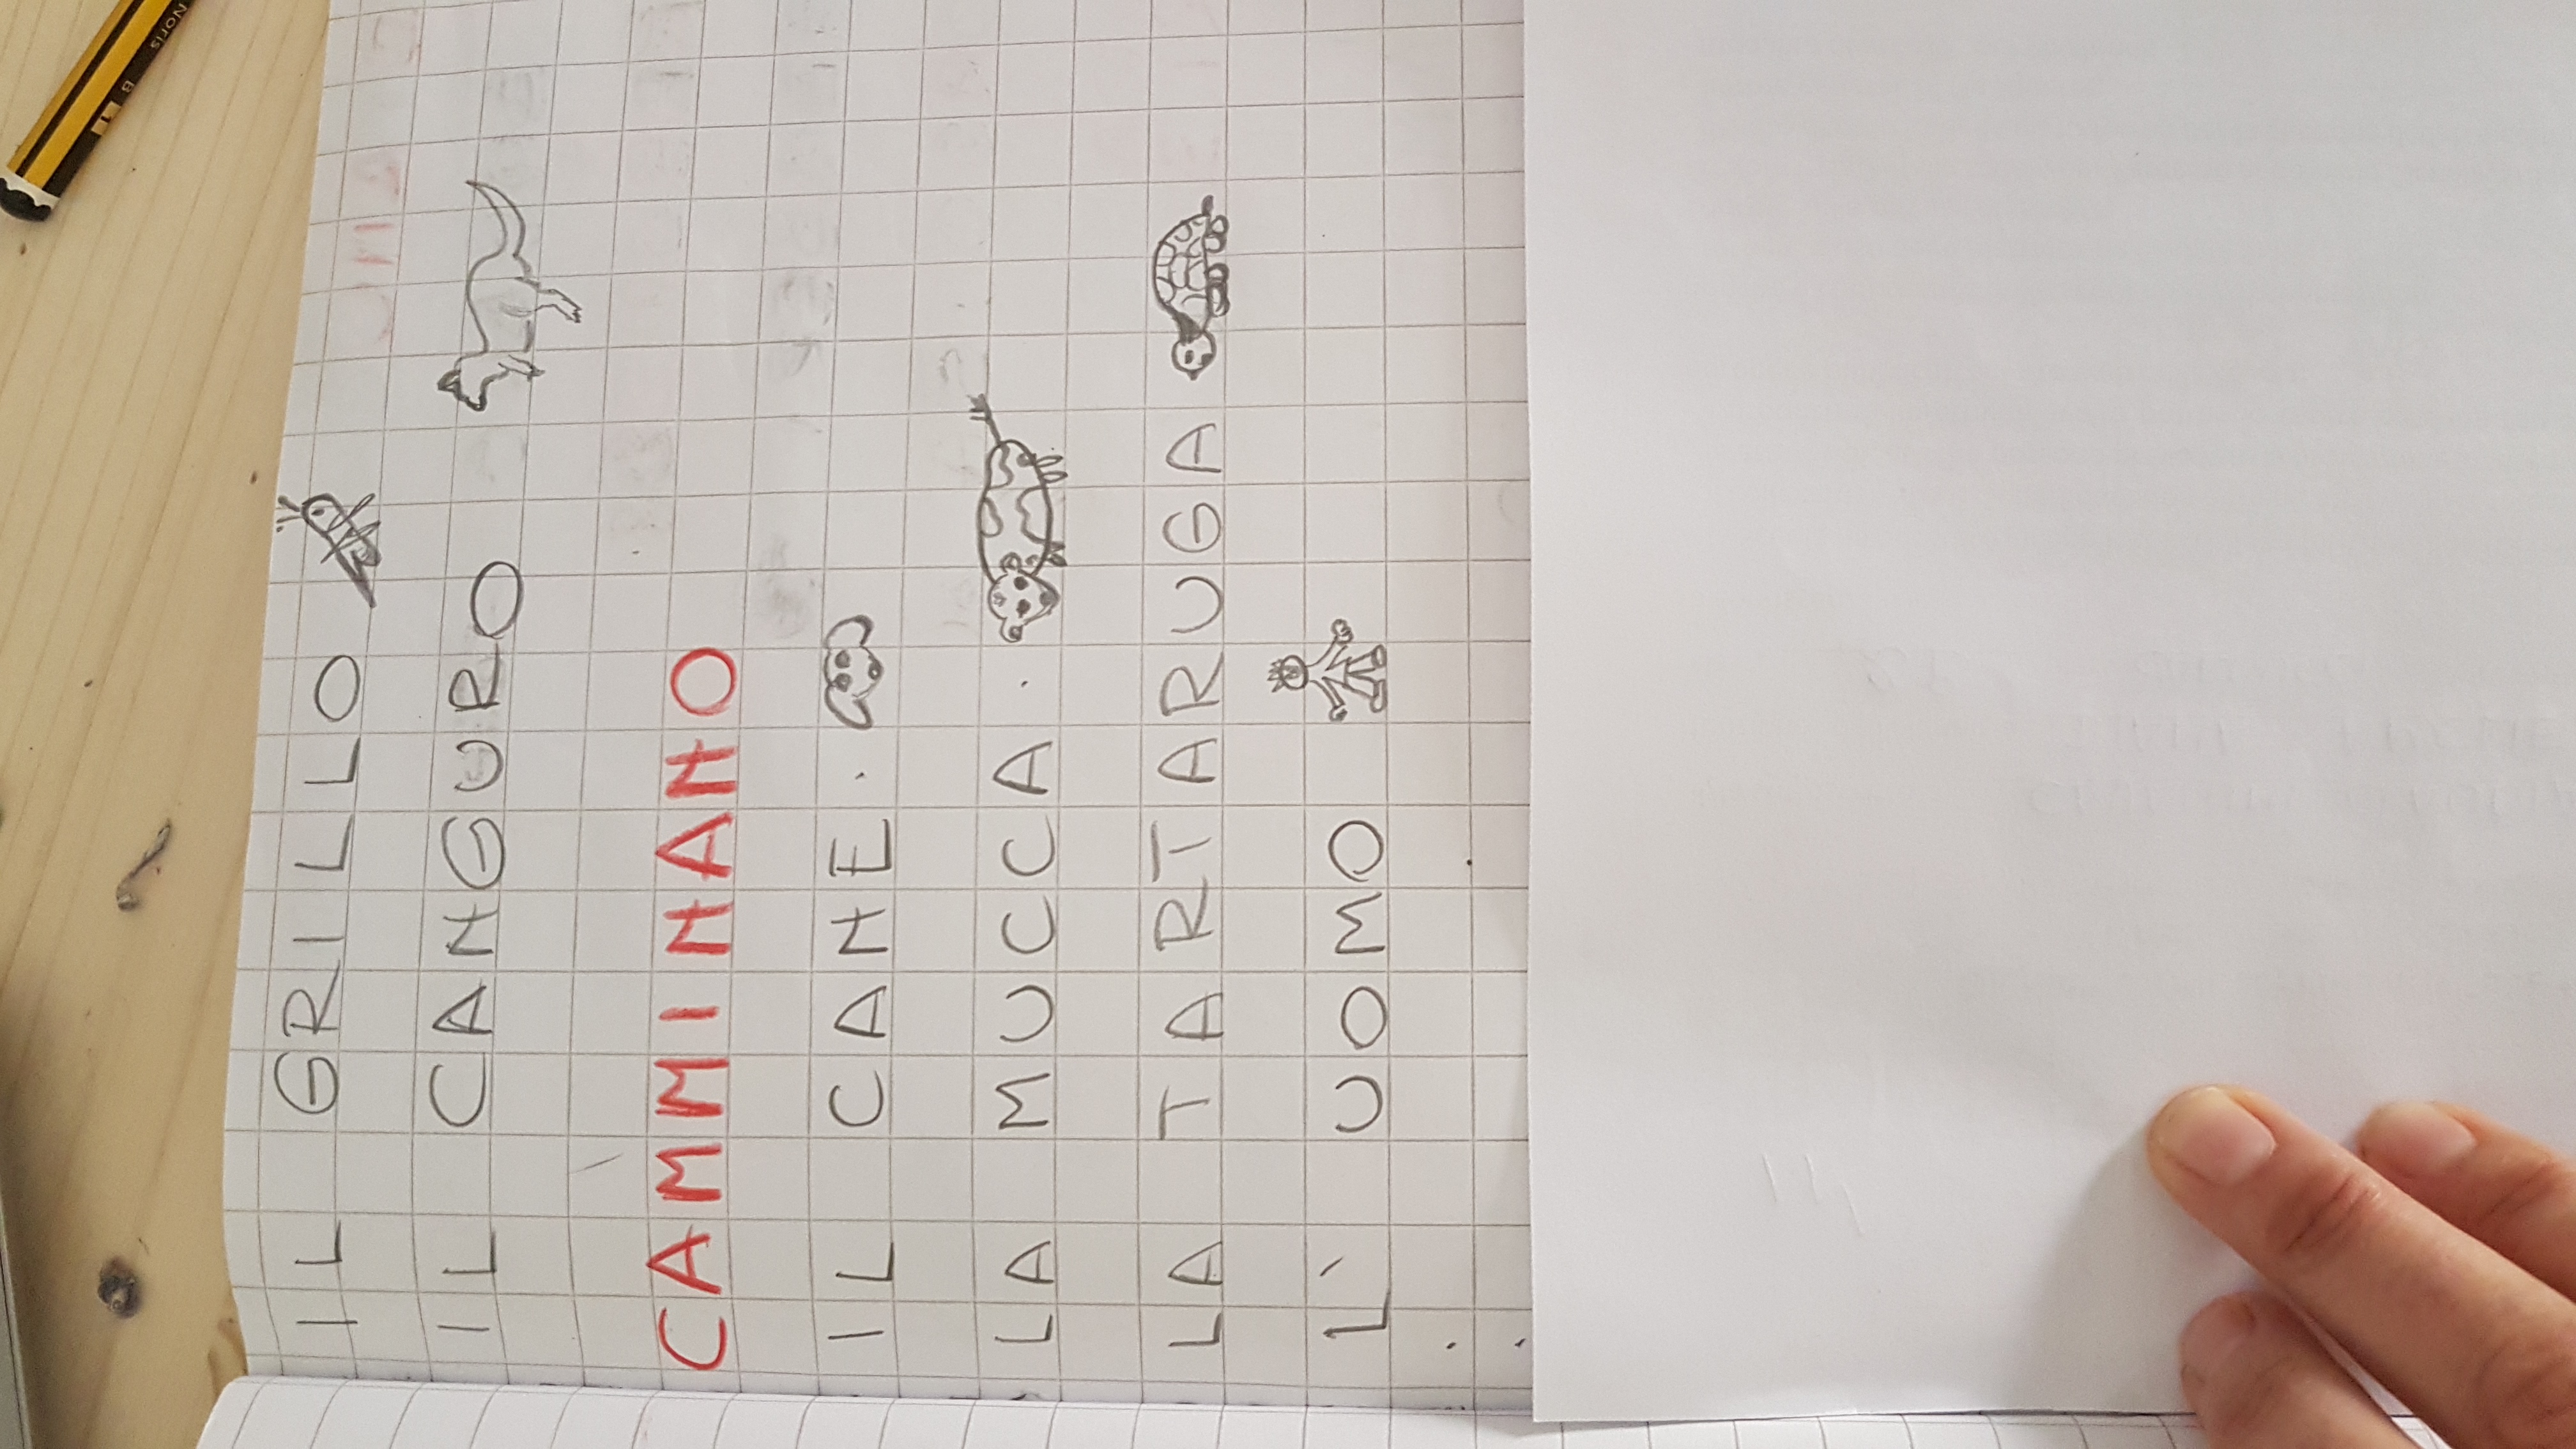 Noris
B
IL GRILLO
IL CANGURO
CAMMINANO
IL CANE.
LA MUCCA.
LA TARTARUGA
L'UOMO